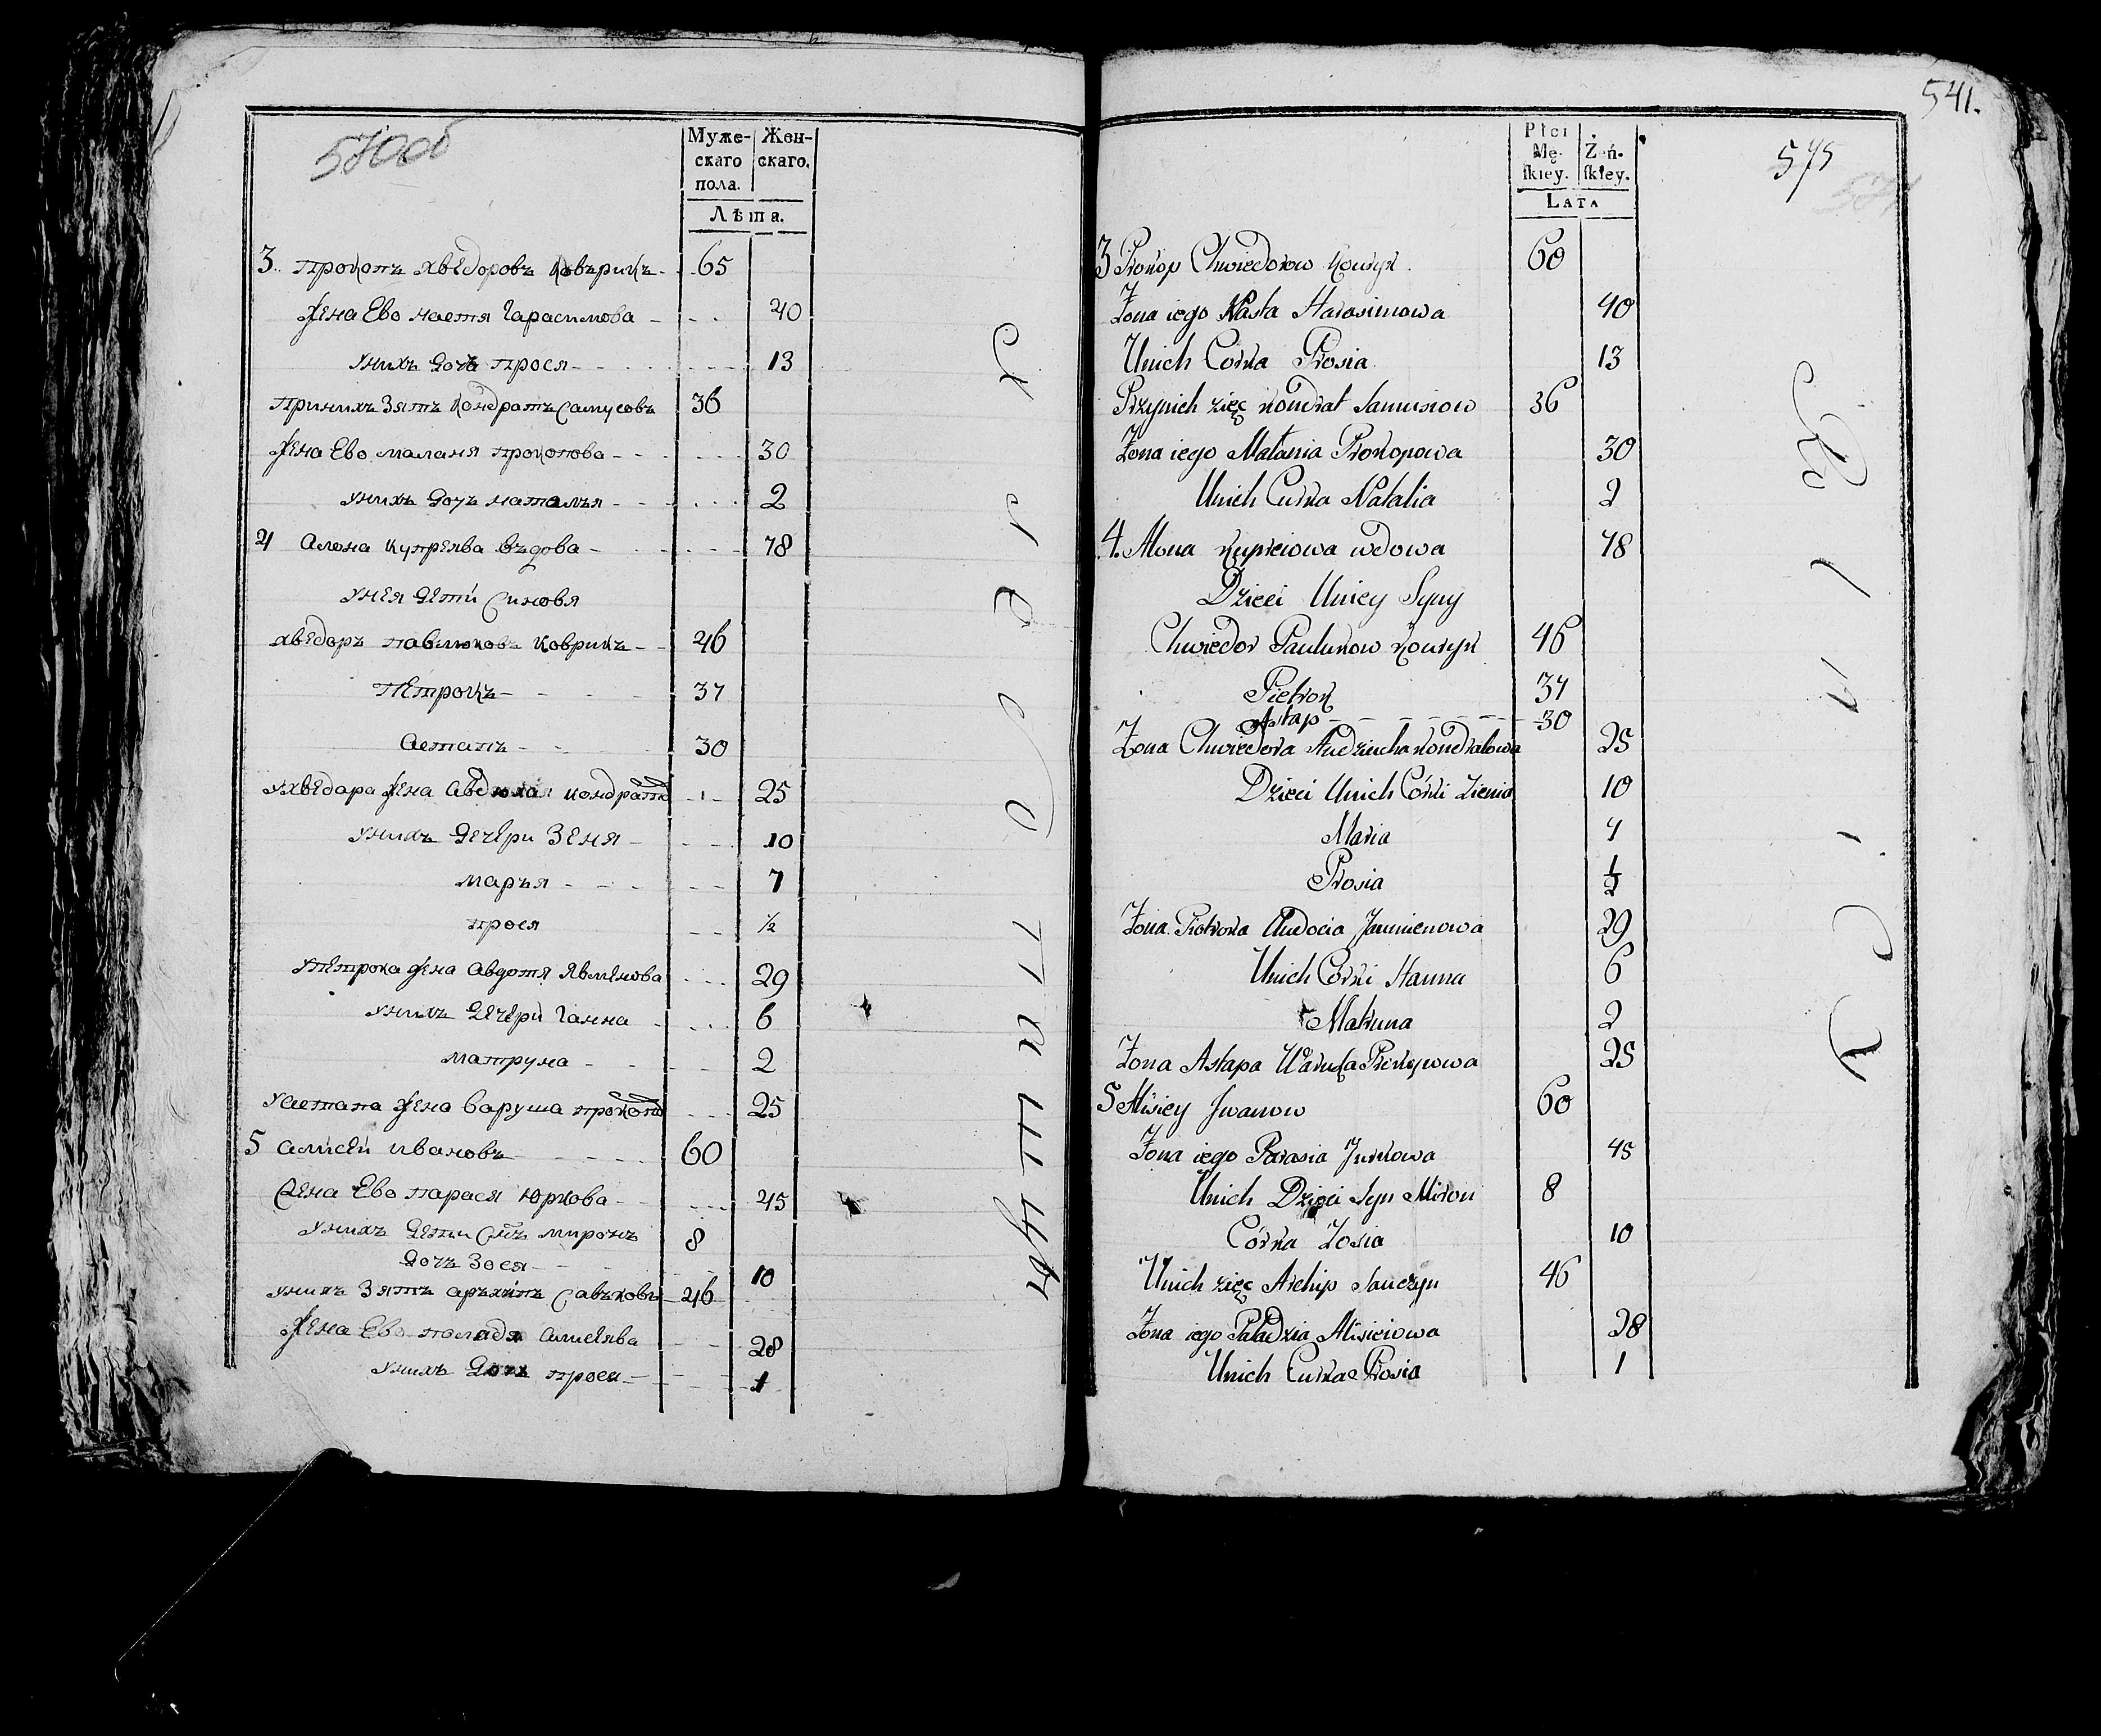 570об
Муже-
скаго
пола.
Жен-
скаго.
Лѣта.
3. Прокопъ Хвѣдоровъ Ковърикъ 65
Жена Ево Настя Гарасимова 40
Унихъ Дочъ Прося 13
Принихъ Зятъ Кондратъ Самусовъ 36
Жена Ево Маланя Прокопова 30
Унихъ Дочъ Наталья 2
4 Алена Купреява въдова 78
Унея Дети Синовя
Хведоръ Павлюковъ Коврикъ 46
Петрокъ 37
Астапъ 30
Ухведара Жена Авдюхая Кондрато 25
Унихъ Дечери Зеня 10
Маръя 7
Прося ½
Упетрока Жена Авдотя Явменова 29
Унихъ Дечери Ганна 6
Матруна 2
Уастапа Жена Варуша Прокопо 25
5 Алисей Ивановъ 60
Жена Ево Парася Юркова 45
Унихъ Дети Снъ Миронъ 8
Дочъ Зося 10
Унихъ Зятъ Аръхипъ Савъковъ 46
Жена Ево Паладя Алисеява 28
Унихъ Дочъ Прося 1
541.
575
Płci
Mę-
ſkiey.
Żeń-
ſkiey.
Lata
3 Prokop Chwiedorow Kowryk 60
Żona iego Nasta Harasimowa 40
Unich Corka Prosia 13
Przynich zięć Kondrat Samusiow 36
Żona iego Małania Prokopowa 30
Unich Curka Natalia 2
4. Alona Kupreiowa wdowa 78
Dzieci Uniey Syny
Chwiedor Paulukow Kowryk 46
Pietrok 37
Astap 30
Żona Chwiedora Audziucha Kondratowa 25
Dzieci Unich Córki Zienia 10
Maria 7
Prosia ½
Żona Pietroka Audocia Jaumienowa 29
Unich Corki Hanna 6
Matruna 2
Żona Astapa Warusza Prokopowa 25
5 Alisiey Jwanow 60
Żona iego Parasia Jurkowa 45
Unich Dzieci Syn Miron 8
Córka Zosia 10
Unich zięć Archip Sauczyn 46
Żona iego Paładzia Alisieiowa 28
Unich Curka Prosia 1